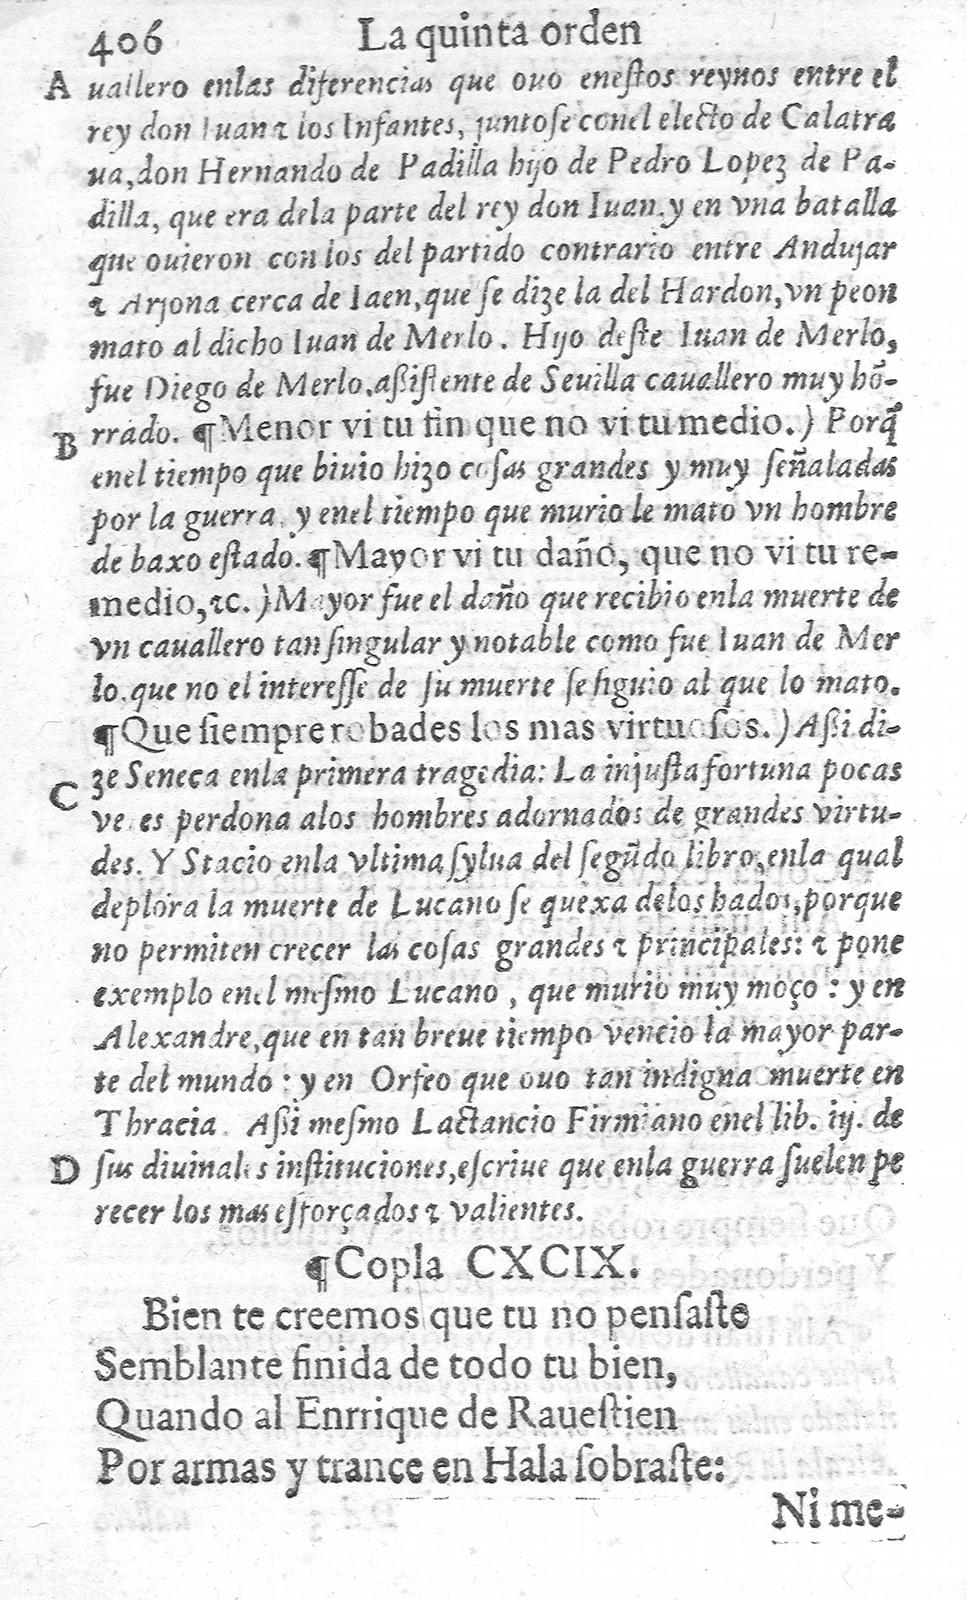 406 La quinta orden
A uallero enlas diferencias que ouo eneſtos reynos entre el
rey don Iuan ⁊ los Infantes, juntoſe conel electo de Calatra
ua,don Hernando de Padilla hijo de Pedro Lopez de Pa-
dilla, que era dela parte del rey don Iuan.y en vna batalla
que ouieron con los del partido contrario entre Andujar
⁊ Arjona cerca de Iaen,que ſe dize la del Hardon,vn peon
mato al dicho Iuan de Merlo. Hijo deſte Iuan de Merlo,
fue Diego de Merlo,aßiſtente de Seuilla cauallero muy hõ-
B rrado. ¶Menor vi tu fin que no vi tu medio.) Porq̃
enel tiempo que biuio hizo coſas grandes y muy ſeñaladas
por la guerra, y enel tiempo que murio le mato vn hombre
de baxo eſtado. ¶Mayor vi tu daño, que no vi tu re-
medio,⁊c.)Mayor fue el daño que recibio enla muerte de
vn cauallero tan ſingular y notable como fue Iuan de Mer
lo.que no el intereſſe de ſu muerte ſe ſiguio al que lo mato.
¶Que ſiempre robades los mas virtuoſos.)Aßi di-
C ze Seneca enla primera tragedia: La injuſta fortuna pocas
vezes perdona alos hombres adornados de grandes virtu-
des. Y Stacio enla vltima ſylua del ſegũdo libro,enla qual
deplora la muerte de Lucano ſe quexa delos hados,porque
no permiten crecer las coſas grandes ⁊ principales: ⁊ pone
exemplo enel meſmo Lucano , que murio muy moço : y en
Alexandre,que en tan breue tiempo vencio la mayor par-
te del mundo : y en Orfeo que ouo tan indigna muerte en
Thracia. Aßi meſmo Lactancio Firmiano enel lib. iij. de
D ſus diuinales inſtituciones,eſcriue que enla guerra ſuelen pe
recer los mas eſforçados ⁊ valientes.
¶Copla CXCIX.
Bien te creemos que tu no penſaſte
Semblante finida de todo tu bien,
Quando al Enrrique de Raueſtien
Por armas y trance en Hala ſobraſte:
Ni me-